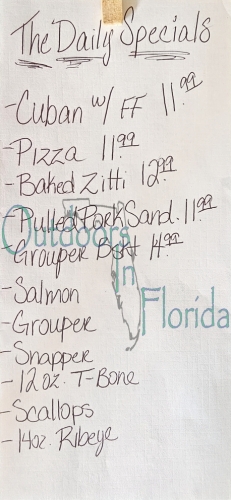 The Daily Specials
-Cuban w/ FF 11.99
-Pizza 11.99
-Baked Zitti 12.99
-Pulled Pork Sand. 11.99
-Grouper Bskt 14.99
-Salmon
-Grouper
-Snapper
-12oz. T-Bone
-Scallops
-14oz. Ribeye
Outdoors
in
Florida